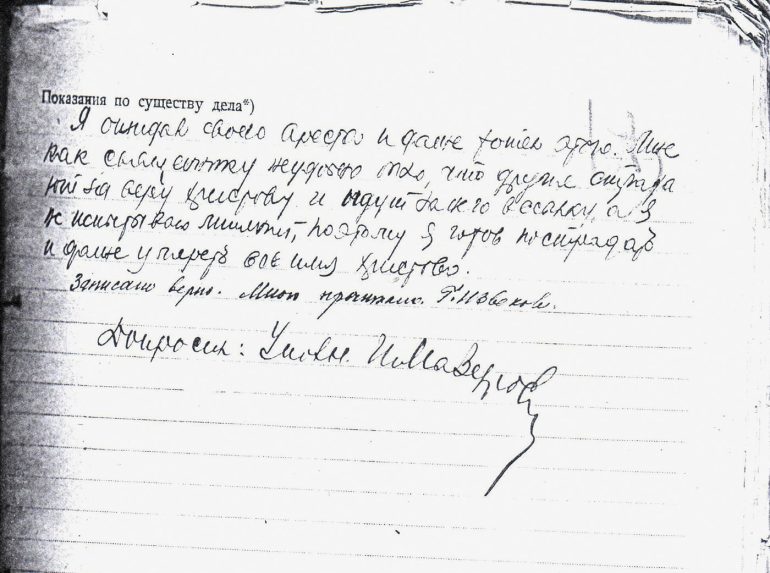 Показания по существу дела*)
Я ожидал своего ареста и даже хотел этого. Мне
как священнику неудобно было, что другие страда
ют за веру Христову и идут за него в ссылку, а я
не испытываю лишений, поэтому я готов пострадать
и даже умереть во имя Христово.
Записано верно. Мною прочитано.
Допросил: Уполн.